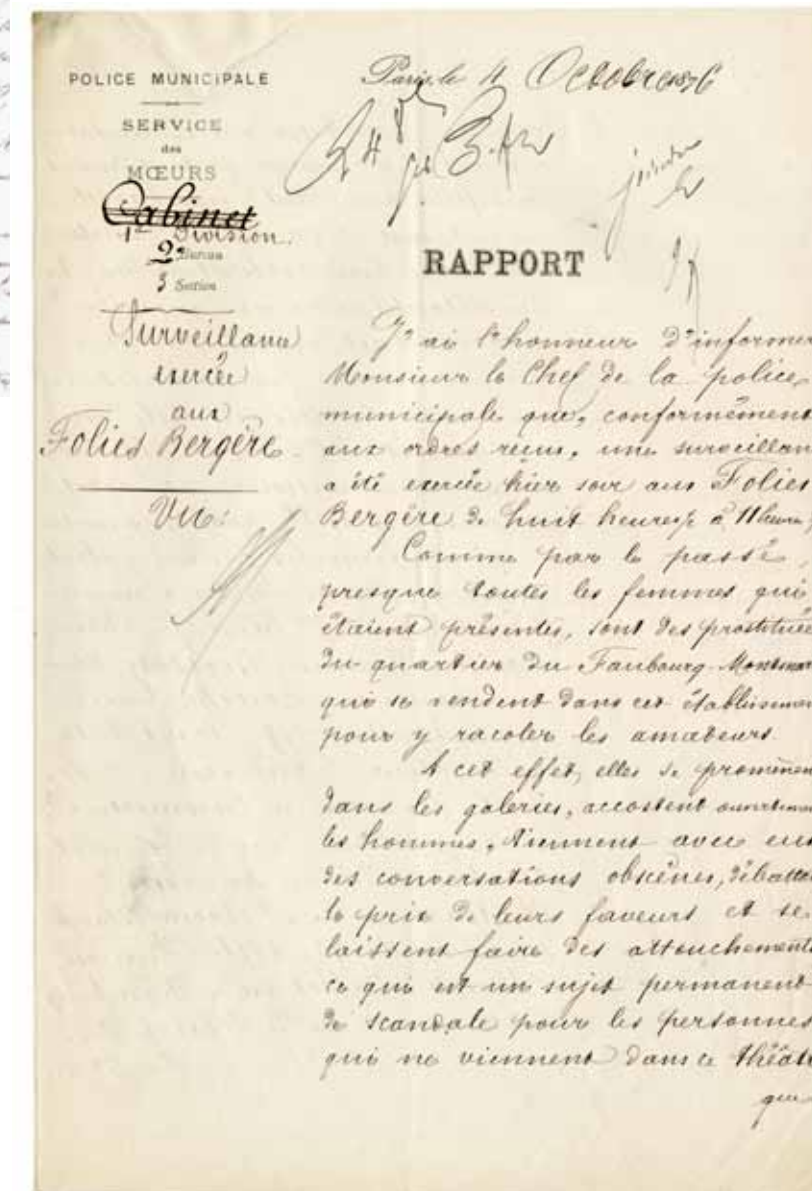 POLICE MUNICIPALE
SERVICE
des
MŒURS
Cabinet
1re Division.
2e Bureau
3 Section
Surveillance
exercée
aux
Folies Bergère.
Vu:
Paris, le 11 Octobre 1876
RAPPORT
J'ai l'honneur d'informer
Monsieur le Chef de la police
municipale que, conformément
aux ordres reçus, une surveillan
a été exercée hier soir aux Folies
Bergère de huit heures ½ à 11 heures
Comme par le passé,
presque toutes les femmes qui
étaient présentes, sont des prostituée
du quartier du Faubourg-Montmar
qui se rendent dans cet établissemen
pour y racoler les amateurs
A cet effet, elles se promènen
dans les galeries, accostent ouvertemen
les hommes, tiennent avec eux
des conversations obscènes, débatten
le prix de leurs faveurs et se
laissent faire des attouchements
ce qui est un sujet permanent
de scandale pour les personnes
qui ne viennent dans ce théâtr
que